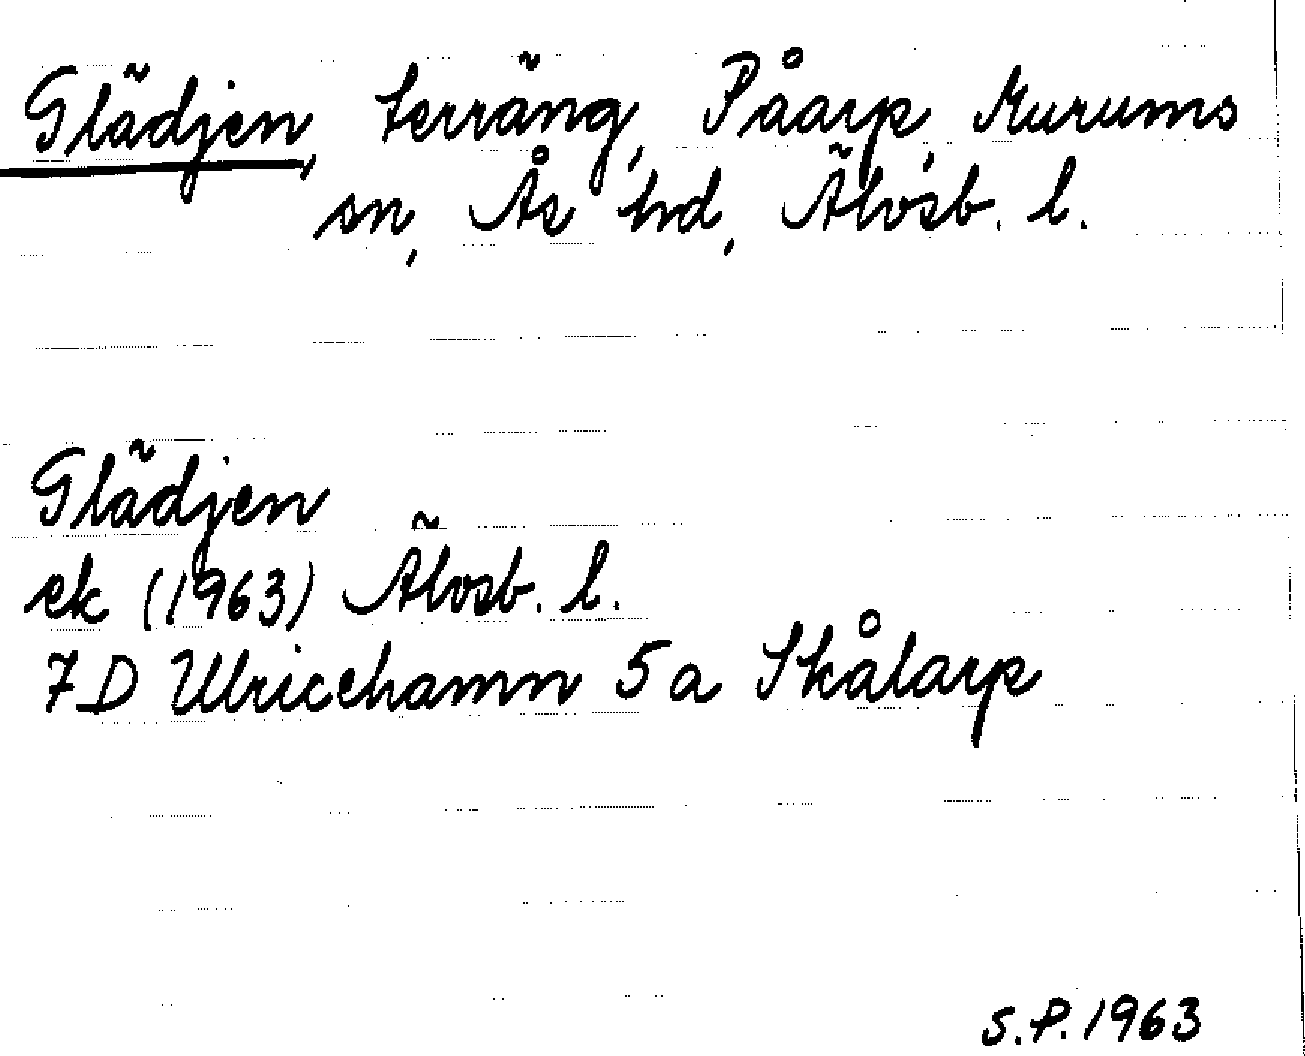 Glädjen, terräng, Påarp, Murums
sn, Ås hd, Älvsb. l.
Glädjen
ek (1963) Älvsb. l.
7D Ulricehamn 5a Skålarp
S.P. 1963